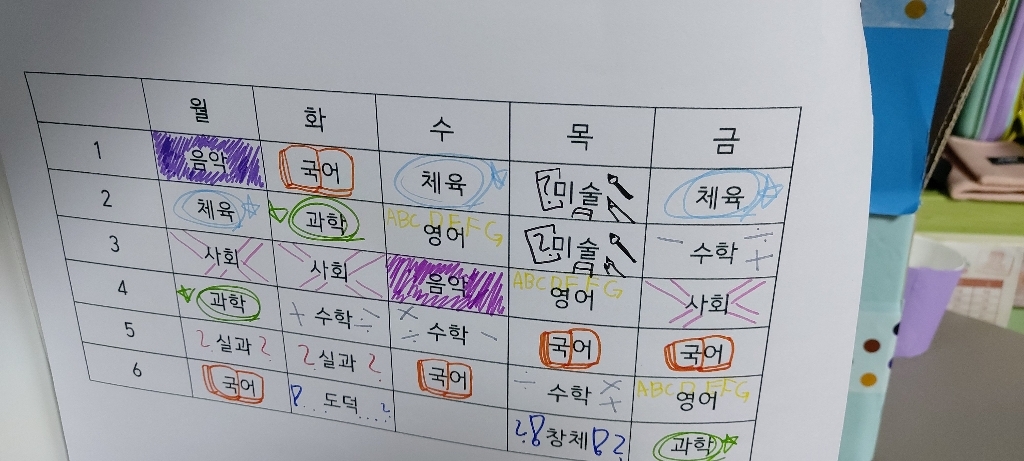 월 화 수 목 금
1 음악 국어 체육 미술 체육
2 체육 과학 ABCDEFG 영어 미술 수학
3 사회 사회 음악 ABCDEFG 영어 사회
4 과학 수학 수학 국어 국어
5 ?실과? ?실과? 국어 수학 ABCDEFG 영어
6 국어 도덕 창체 과학